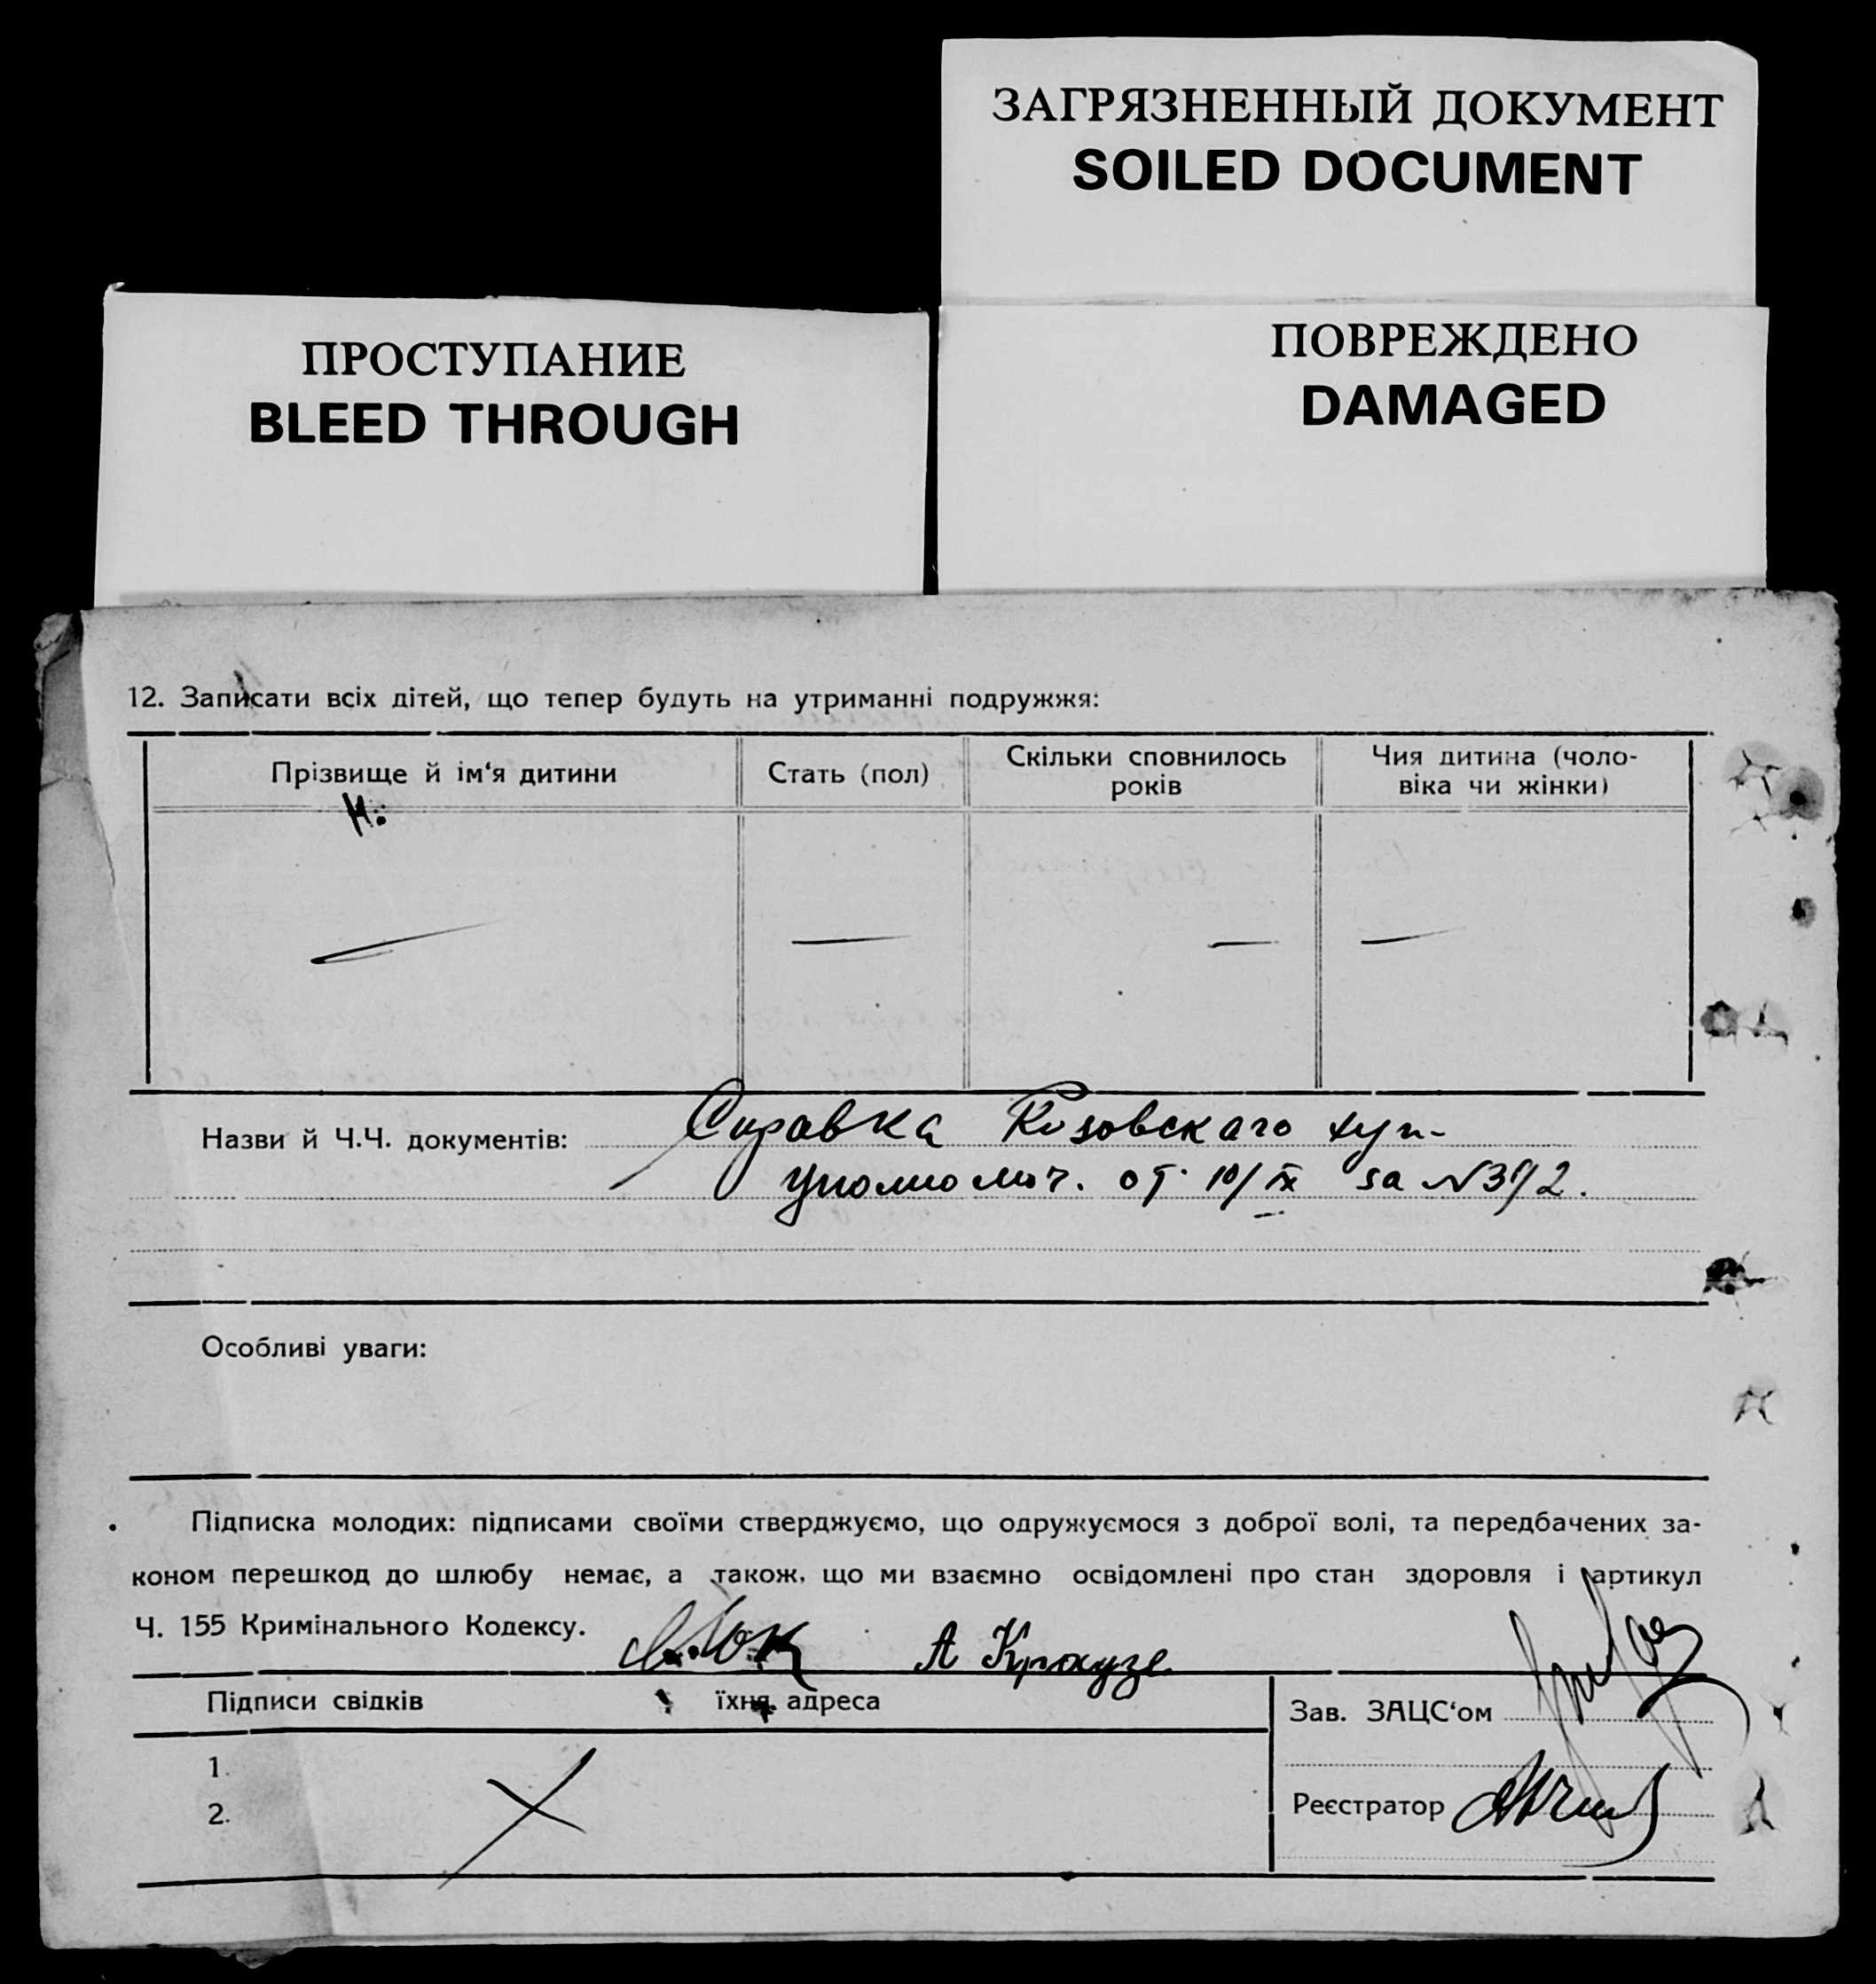 ЗАГРЯЗНЕННЫЙ ДОКУМЕНТ
SOILED DOCUMENT
ПРОСТУПАНИЕ
BLEED THROUGH
ПОВРЕЖДЕНО
DAMAGED
12. Записати всіх дітей, що тепер будуть на утриманні подружжя:
Прізвище й ім‘я дитини
Стать (пол)
Скільки сповнилось
років
Чия дитина (чоло-
віка чи жінки)
Назви й Ч.Ч. документів: Справка Розовскаго хут-
уполномоч. от 10/IX за №
Особливі уваги:
Підписка молодих: підписами своїми стверджуємо, що одружуємося з доброї волі, та передбачених за-
коном перешкод до шлюбу немає, а також, що ми взаємно освідомлені про стан здоровля і артикул
Ч. 155 Кримінального Кодексу.
А Краузе
Підписи свідків їхня адреса
Зав. ЗАЦС‘ом
1.
2.
Реєстратор